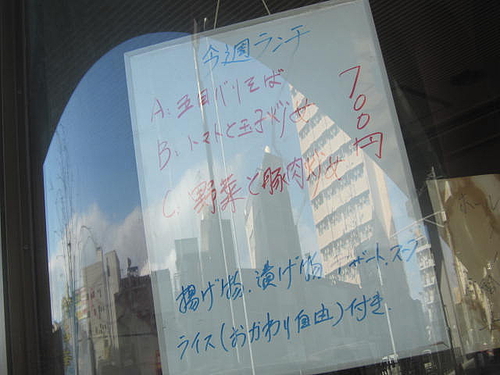 今週ランチ
A. 五目バリそば
B. トマトと玉子炒め
C. 野菜と豚肉炒め
700円
揚げ物. 漬け物 デザート. スープ
ライス(おかわり自由)付き.